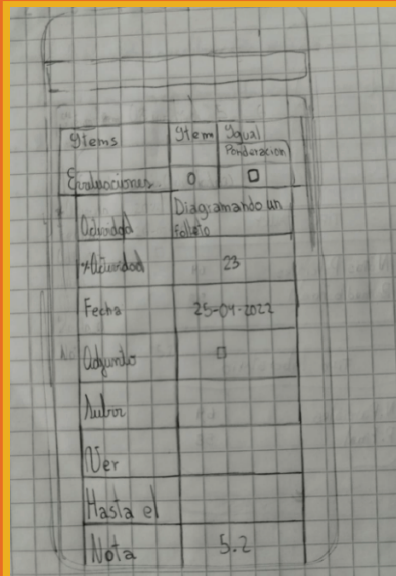 Items Item Igual
Ponderacion
Evaluaciones 0
Actividad Diagramando un
folleto
%Actividad 23
Fecha 25-04-2022
Adjunto
Subir
Ver
Hasta el
Nota 5.2